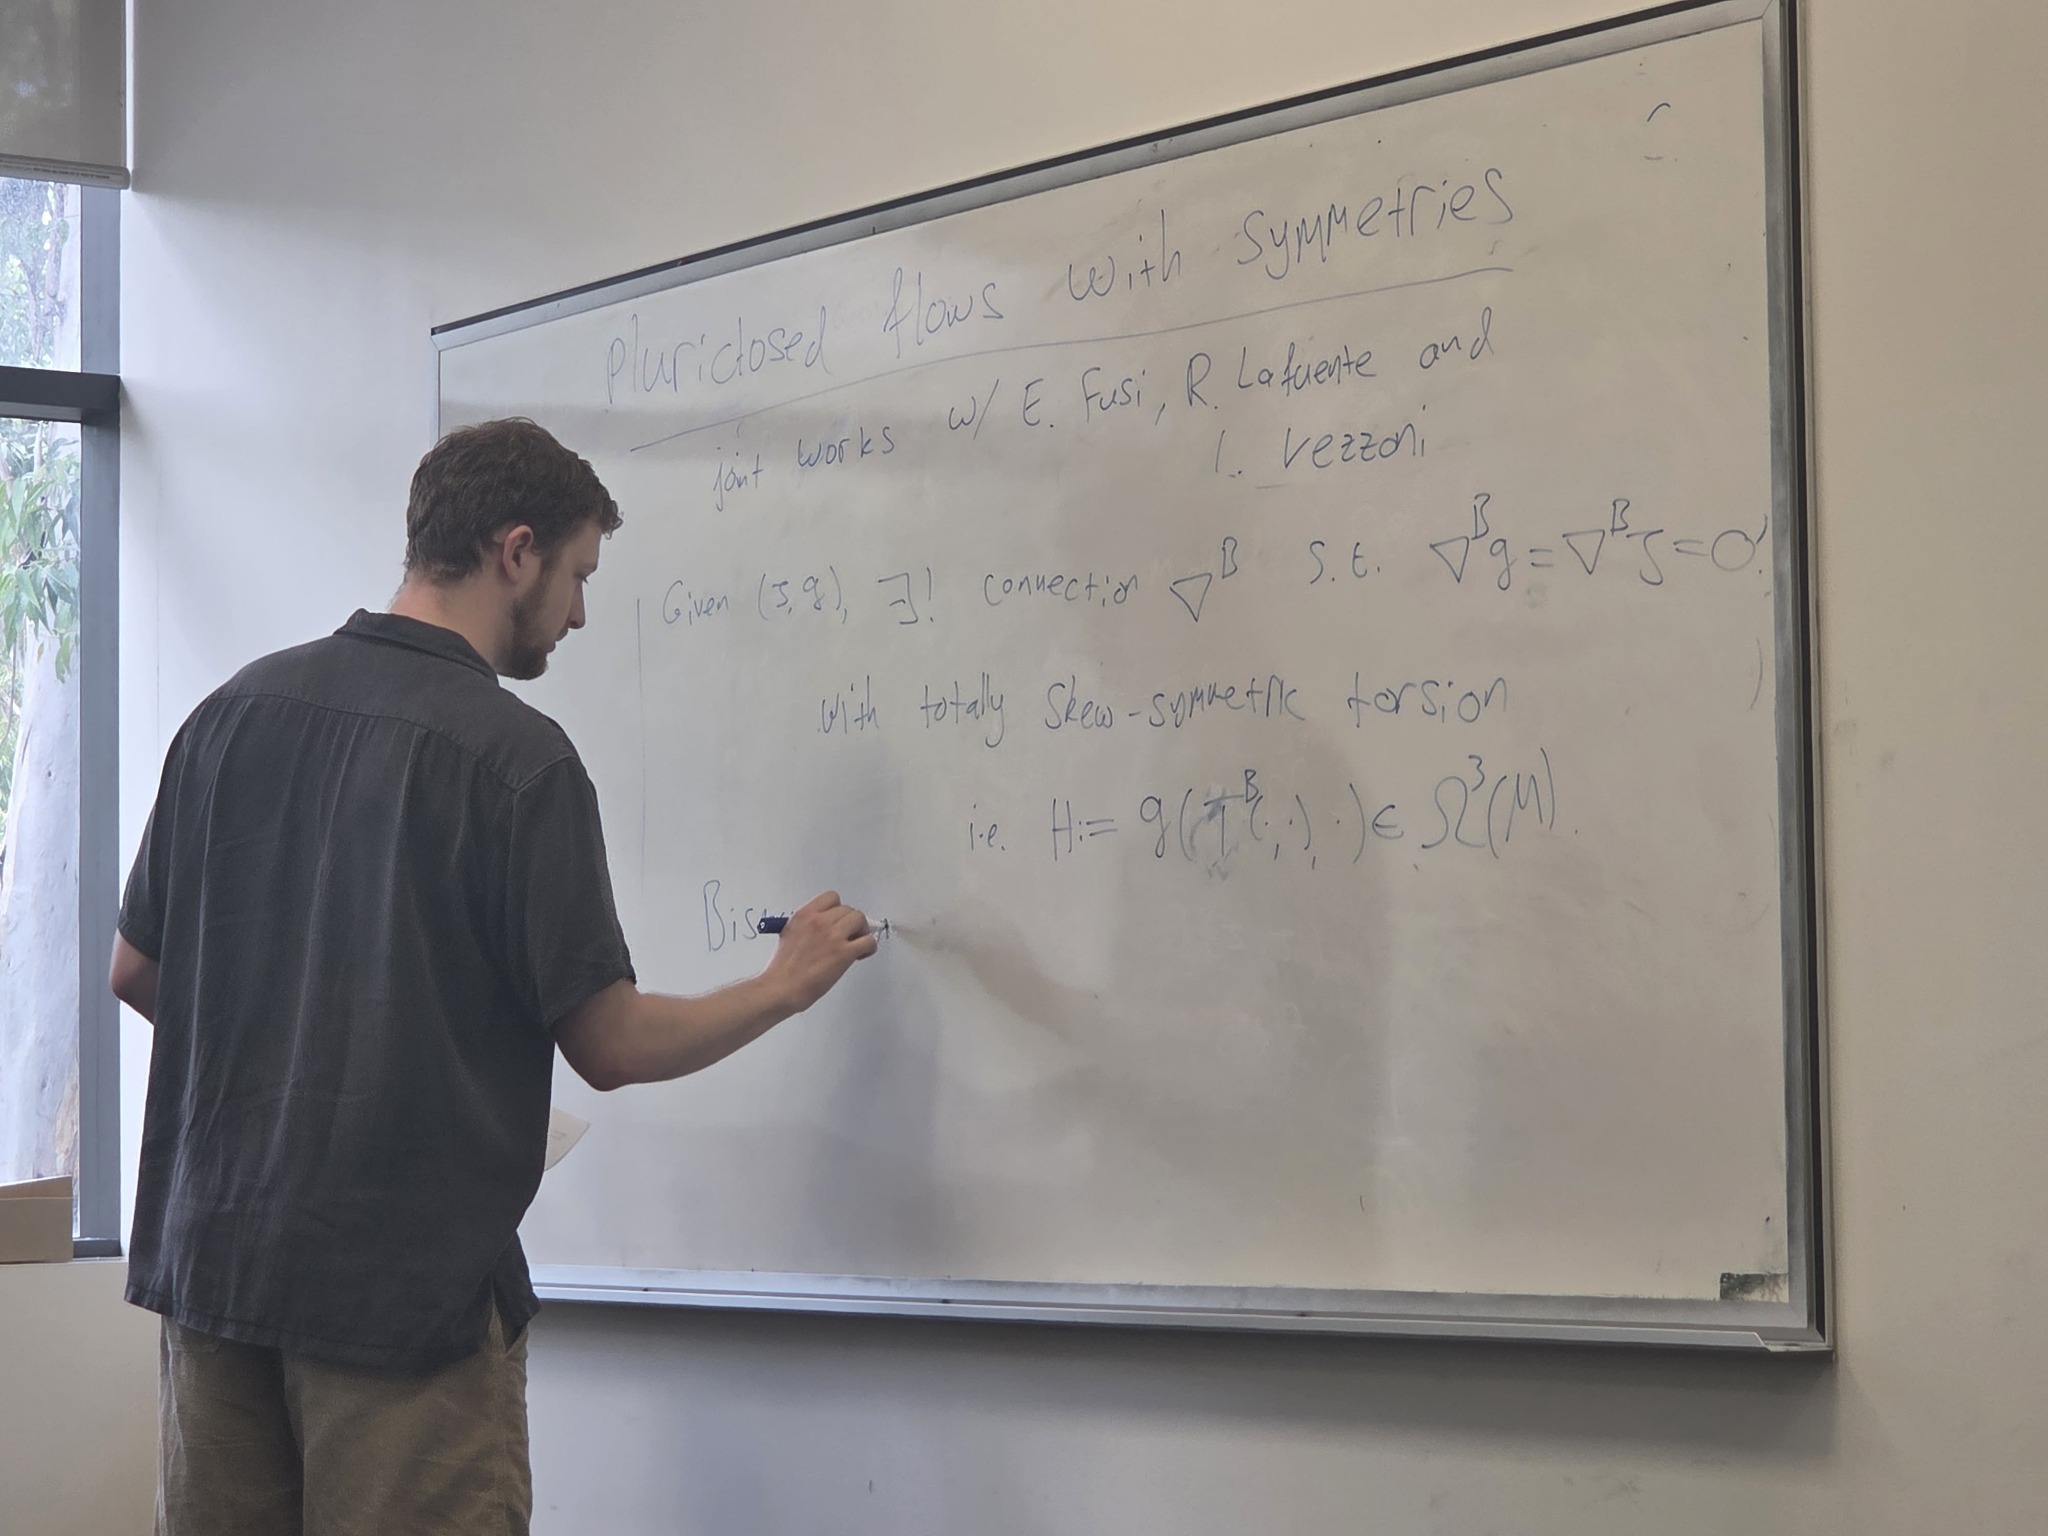 Pluriclosed flows with symmetries
joint works w/ E. Fusi, R. Lafuente and
L. Vezzoni
Given (J, g), ∃! connection ∇ᴮ s.t. ∇ᴮg = ∇ᴮJ = 0
with totally skew-symmetric torsion
i.e. H := g(Tᴮ(·,·),·) ∈ Ω³(M).